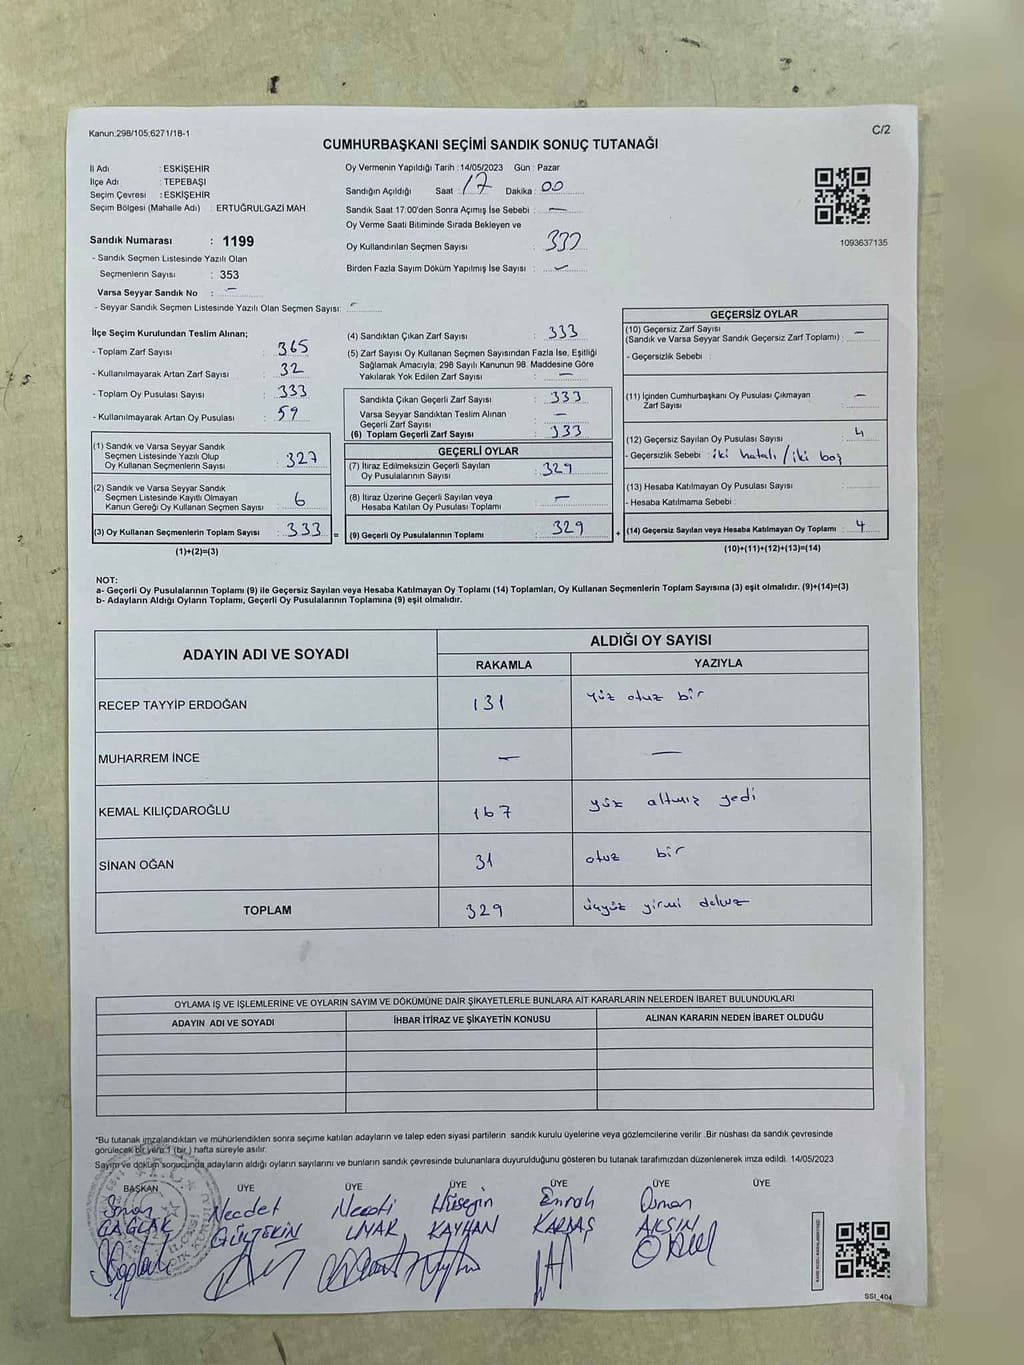 Kanun:298/105,6271/18-1
C/2
CUMHURBAŞKANI SEÇİMİ SANDIK SONUÇ TUTANAĞI
İl Adı : ESKİŞEHİR
İlçe Adı : TEPEBAŞI
Seçim Çevresi : ESKİŞEHİR
Seçim Bölgesi (Mahalle Adı) : ERTUĞRULGAZİ MAH
Sandık Numarası : 1199
- Sandık Seçmen Listesinde Yazılı Olan
Seçmenlerin Sayısı : 353
Varsa Seyyar Sandık No : -
- Seyyar Sandık Seçmen Listesinde Yazılı Olan Seçmen Sayısı: -
Oy Vermenin Yapıldığı Tarih :14/05/2023 Gün : Pazar
Sandığın Açıldığı Saat : 17 Dakika : 00
Sandık Saat 17:00'den Sonra Açımış İse Sebebi : -
Oy Verme Saati Bitiminde Sırada Bekleyen ve
Oy Kullandırılan Seçmen Sayısı : 333
Birden Fazla Sayım Döküm Yapılmış İse Sayısı : -
1093637135
İlçe Seçim Kurulundan Teslim Alınan;
- Toplam Zarf Sayısı : 365
- Kullanılmayarak Artan Zarf Sayısı : 32
- Toplam Oy Pusulası Sayısı : 333
- Kullanılmayarak Artan Oy Pusulası : 59
(1) Sandık ve Varsa Seyyar Sandık
Seçmen Listesinde Yazılı Olup
Oy Kullanan Seçmenlerin Sayısı : 327
(2) Sandık ve Varsa Seyyar Sandık
Seçmen Listesinde Kayıtlı Olmayan
Kanun Gereği Oy Kullanan Seçmen Sayısı : 6
(3) Oy Kullanan Seçmenlerin Toplam Sayısı : 333 =
(1)+(2)=(3)
(4) Sandıktan Çıkan Zarf Sayısı : 333
(5) Zarf Sayısı Oy Kullanan Seçmen Sayısından Fazla İse, Eşitliği
Sağlamak Amacıyla, 298 Sayılı Kanunun 98. Maddesine Göre
Yakılarak Yok Edilen Zarf Sayısı : -
Sandıkta Çıkan Geçerli Zarf Sayısı : 333
Varsa Seyyar Sandıktan Teslim Alınan
Geçerli Zarf Sayısı : -
(6) Toplam Geçerli Zarf Sayısı : 333
GEÇERLİ OYLAR
(7) İtiraz Edilmeksizin Geçerli Sayılan
Oy Pusulalarının Sayısı : 329
(8) İtiraz Üzerine Geçerli Sayılan veya
Hesaba Katılan Oy Pusulası Toplamı : -
(9) Geçerli Oy Pusulalarının Toplamı : 329 +
GEÇERSİZ OYLAR
(10) Geçersiz Zarf Sayısı
(Sandık ve Varsa Seyyar Sandık Geçersiz Zarf Toplamı) : -
- Geçersizlik Sebebi :
(11) İçinden Cumhurbaşkanı Oy Pusulası Çıkmayan
Zarf Sayısı : -
(12) Geçersiz Sayılan Oy Pusulası Sayısı : 4
- Geçersizlik Sebebi : iki hatalı / iki boş
(13) Hesaba Katılmayan Oy Pusulası Sayısı :
- Hesaba Katılmama Sebebi :
(14) Geçersiz Sayılan veya Hesaba Katılmayan Oy Toplamı : 4
(10)+(11)+(12)+(13)=(14)
NOT:
a- Geçerli Oy Pusulalarının Toplamı (9) ile Geçersiz Sayılan veya Hesaba Katılmayan Oy Toplamı (14) Toplamları, Oy Kullanan Seçmenlerin Toplam Sayısına (3) eşit olmalıdır. (9)+(14)=(3)
b- Adayların Aldığı Oyların Toplamı, Geçerli Oy Pusulalarının Toplamına (9) eşit olmalıdır.
ADAYIN ADI VE SOYADI
ALDIĞI OY SAYISI
RAKAMLA YAZIYLA
RECEP TAYYİP ERDOĞAN 131 yüz otuz bir
MUHARREM İNCE - -
KEMAL KILIÇDAROĞLU 167 yüz altmış yedi
SİNAN OĞAN 31 otuz bir
TOPLAM 329 üçyüz yirmi dokuz
OYLAMA İŞ VE İŞLEMLERİNE VE OYLARIN SAYIM VE DÖKÜMÜNE DAİR ŞİKAYETLERLE BUNLARA AİT KARARLARIN NELERDEN İBARET BULUNDUKLARI
ADAYIN ADI VE SOYADI İHBAR İTİRAZ VE ŞİKAYETİN KONUSU ALINAN KARARIN NEDEN İBARET OLDUĞU
*Bu tutanak imzalandıktan ve mühürlendikten sonra seçime katılan adayların ve talep eden siyasi partilerin sandık kurulu üyelerine veya gözlemcilerine verilir .Bir nüshası da sandık çevresinde
görülecek bir yere 1 (bir ) hafta süreyle asılır.
Sayım ve döküm sonucunda adayların aldığı oyların sayılarını ve bunların sandık çevresinde bulunanlara duyurulduğunu gösteren bu tutanak tarafımızdan düzenlenerek imza edildi. 14/05/2023
BAŞKAN ÜYE ÜYE ÜYE ÜYE ÜYE ÜYE
Necdet Necati Hüseyin Emrah Osman
ÇAĞLAK GÜLTEKİN UYAR KAYHAN KARBAŞ AKSIN
SSI_404